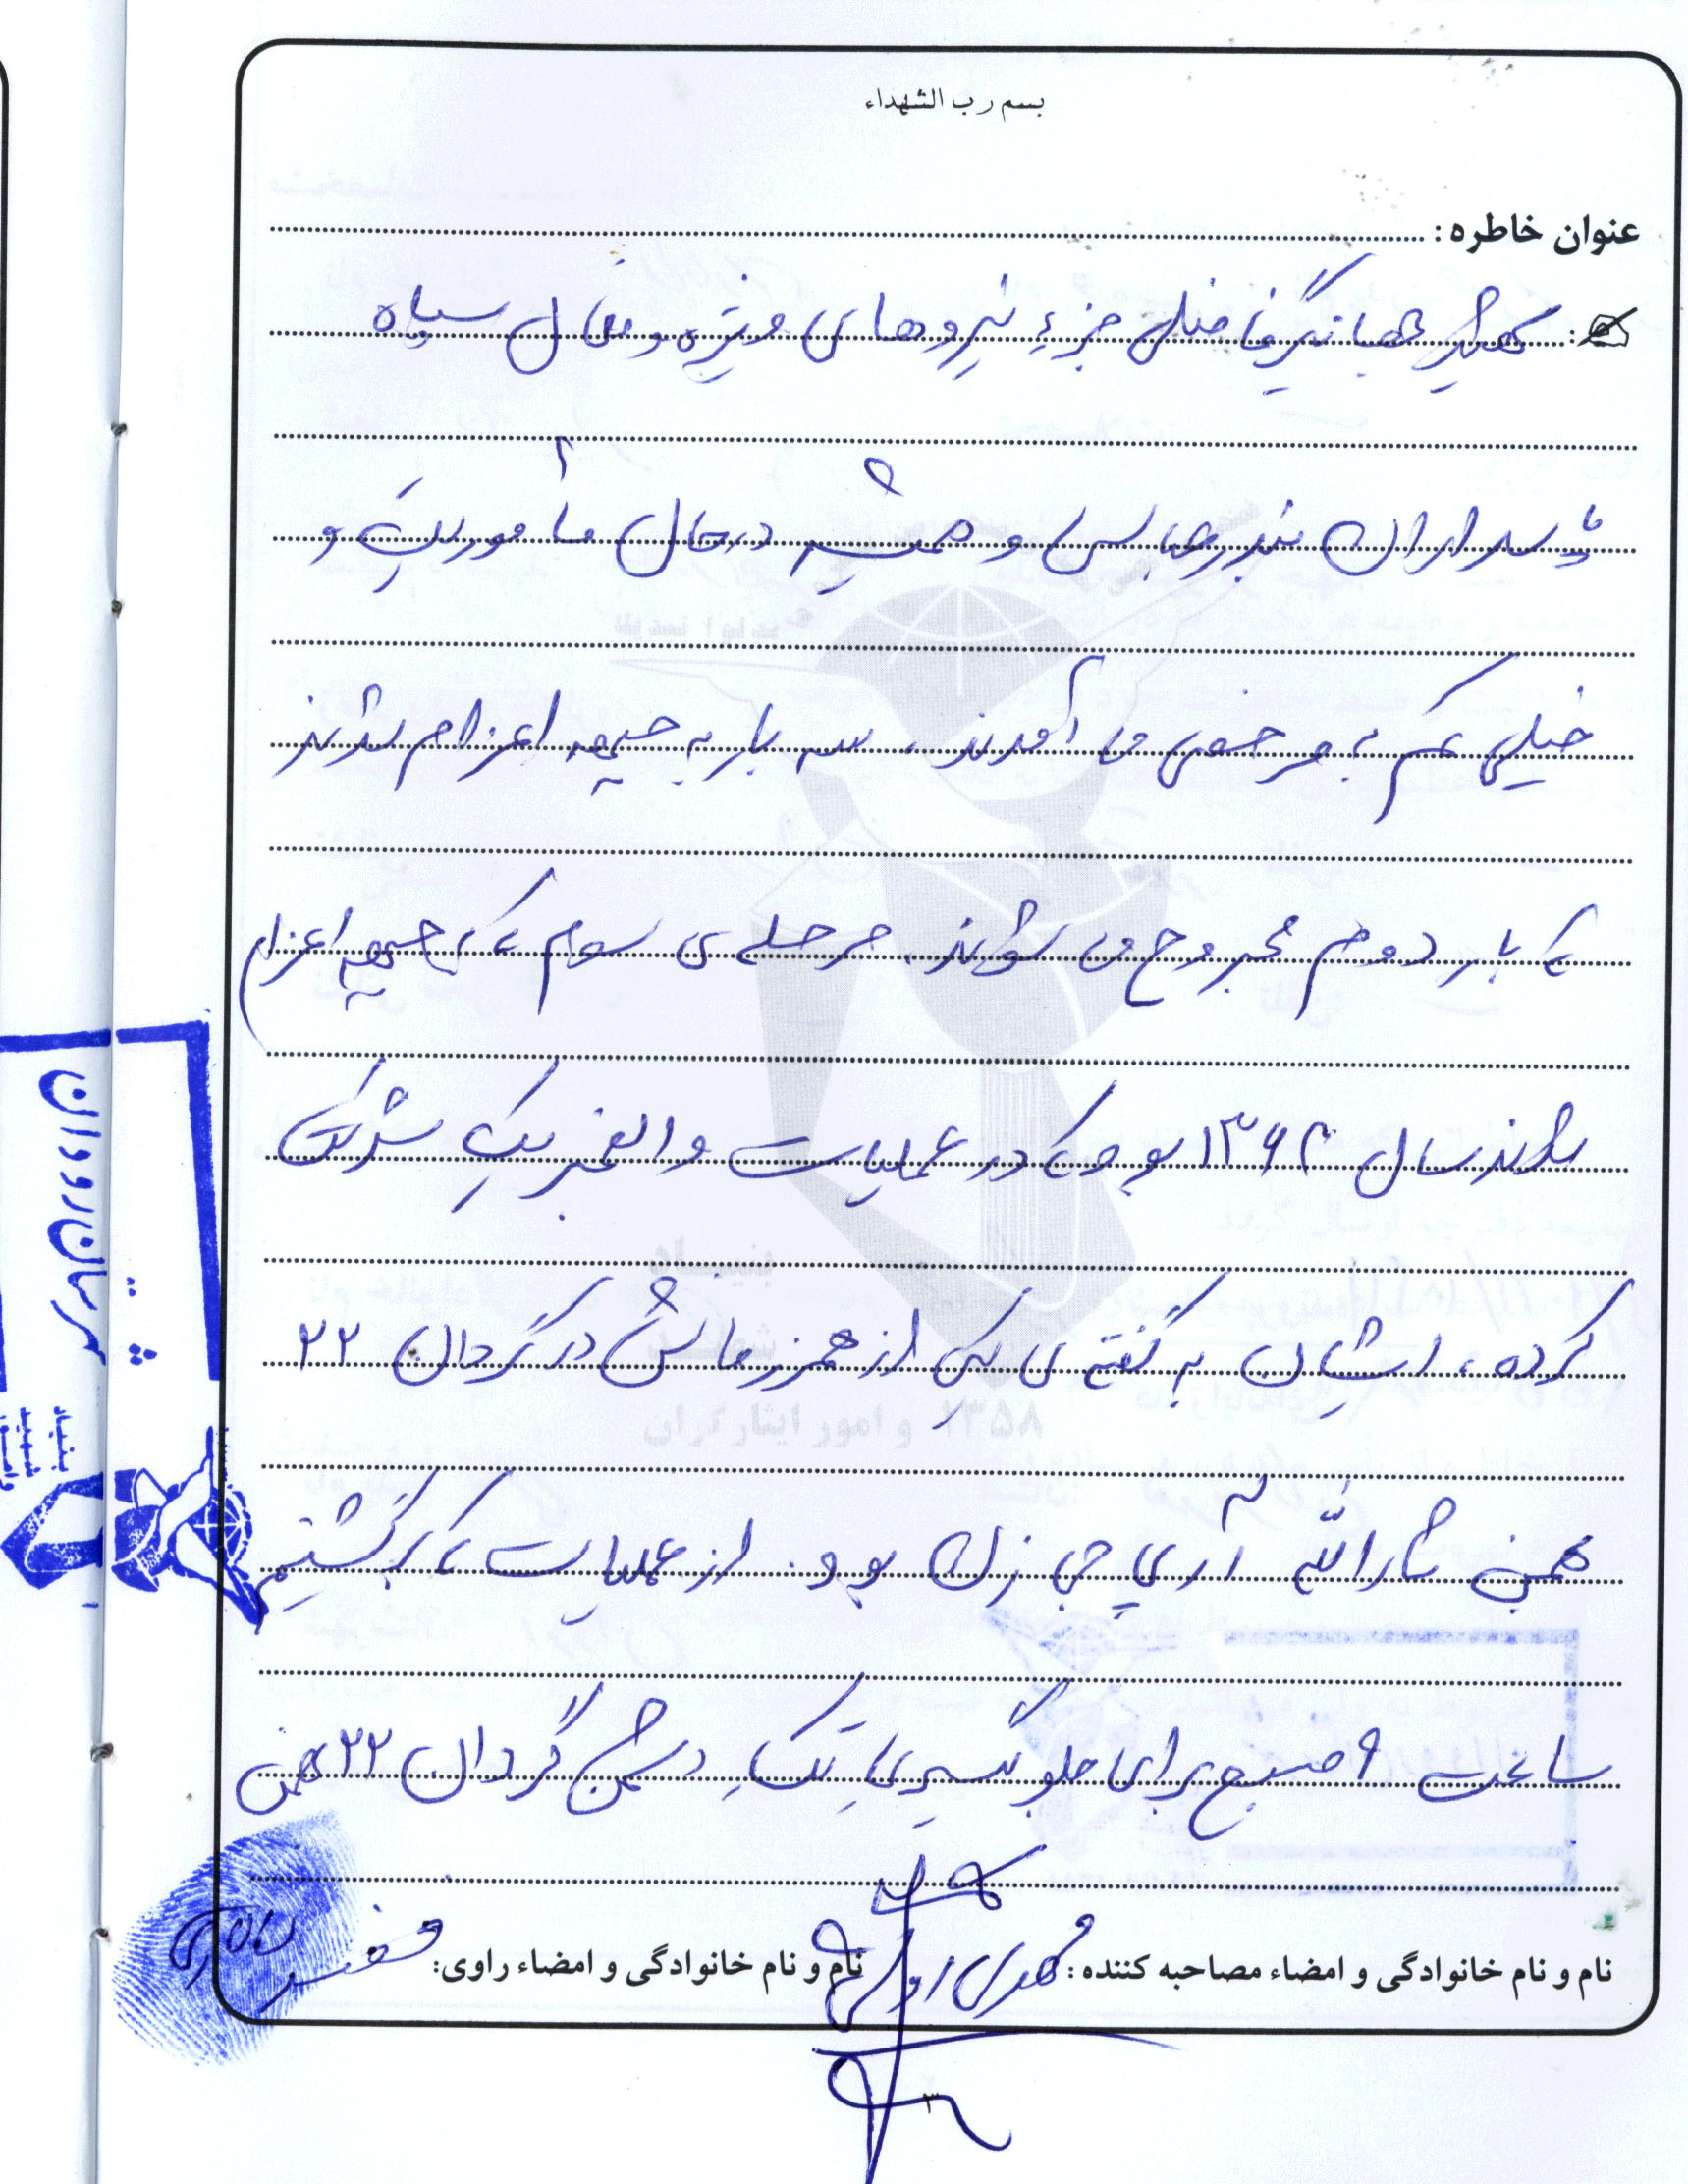 بسم رب الشهداء
عنوان خاطره :
شهید جهانگیر فاضلی جزء نیروهای ویژه و فعال سپاه
پاسداران بندرعباس و همیشه در حال مأموریت و
خیلی کم به مرخصی می آمدند، سه بار به جبهه اعزام شدند
که بار دوم مجروح می شوند. مرحله ی سوم که به جبهه اعزام
شدند سال ۱۳۶۴ بود که در عملیات والفجر یک شرکت
کرده، ایشان به گفته ی یکی از همرزمانش در گردان ۲۲
بهمن ثارالله آرپی جی زن بود. از عملیات که برگشتیم
ساعت ۹ صبح برای جلوگیری با تک دشمن گردان ۲۲ بهمن
نام و نام خانوادگی و امضاء مصاحبه کننده : مهدی
نام و نام خانوادگی و امضاء راوی:
بنیاد شهید
۱۳۵۸ و امور ایثارگران
۳